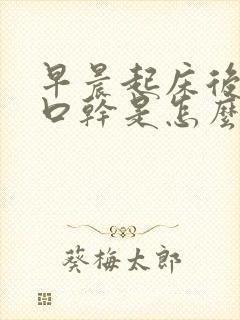 早晨起床後
口幹是怎麼
葵梅太郎